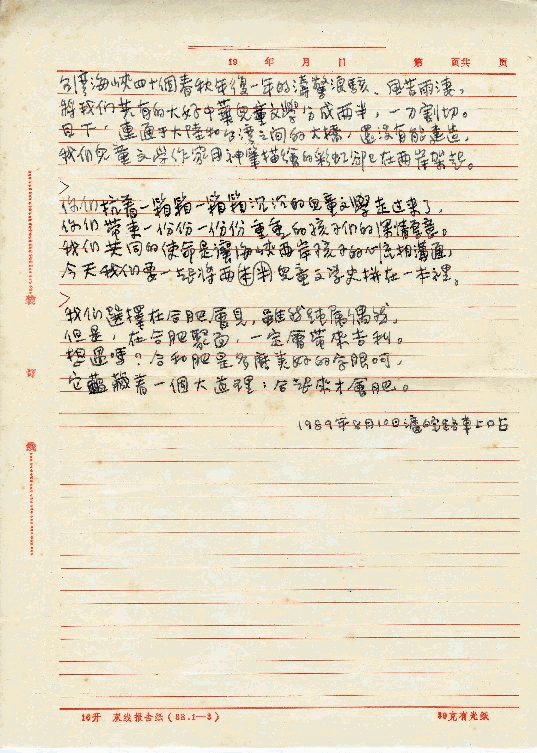 19 年 月 日 第 页共 页
台灣海峽四十個春秋年復一年的濤聲浪駭、風苦雨凄,
將我們共有的大好中華兒童文學分成兩半,一刀割切。
目下,連通于大陸和台灣之间的大橋,還沒有能建造,
我们兒童文學作家用神筆描繪的彩虹卻已在两岸架起。
>
你们抗着一箱箱一箱箱沉沉的兒童文學走过来了,
你们带来一份份一份份重重的孩子们的深情意意。
我们共同的使命是讓海峽西岸孩子的心流相溝通,
今天我们要一起将两半兒童文学史拼在一本裡。
>
我们選擇在合肥會見,雖然純屬偶然,
但是,在合肥聚面,一定會带来吉利。
想過嗎?合和肥是多麼美好的字眼呵,
它蘊藏着一個大道理:合起来才會肥。
1989年8月10日 車上口占
装
订
线
16开 双线报告纸(88.1—3)
50克有光纸